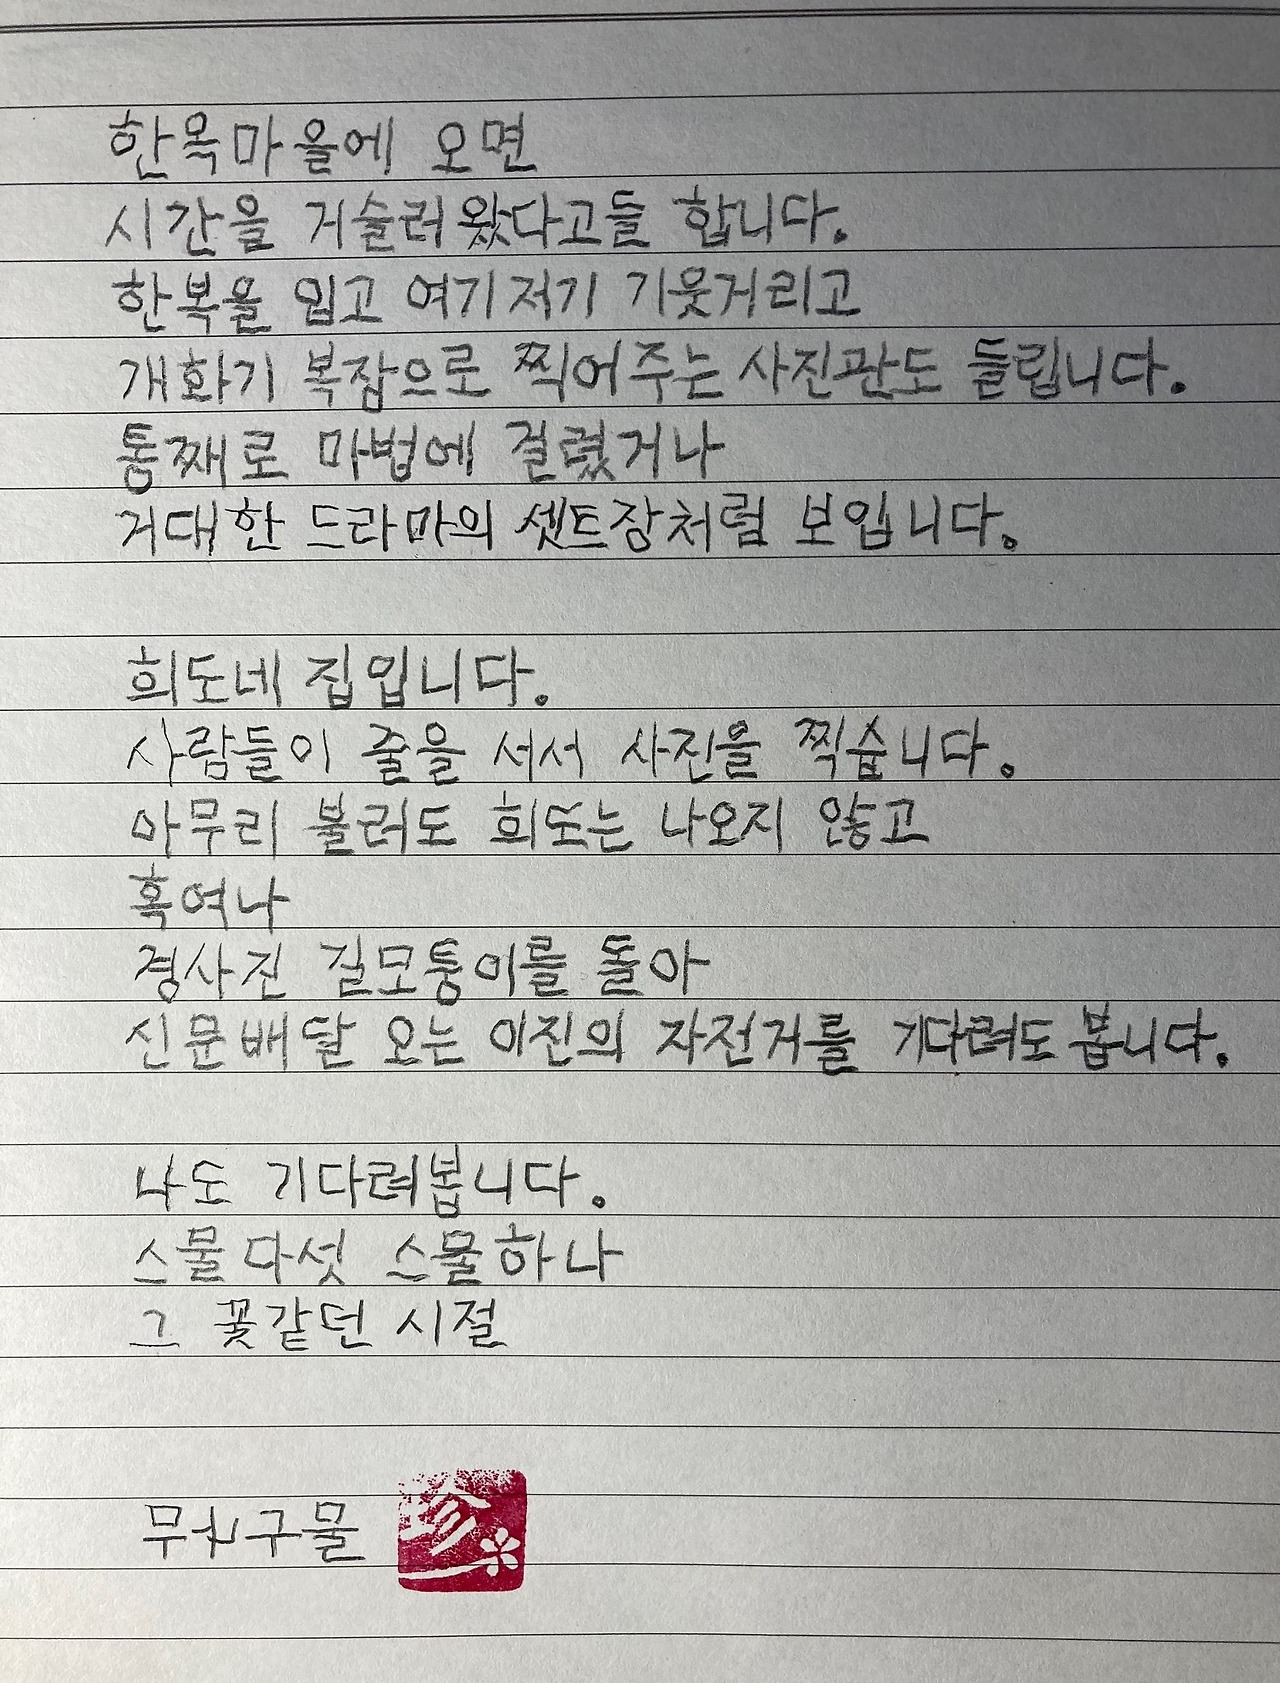 한옥마을에 오면
시간을 거슬러왔다고들 합니다.
한복을 입고 여기저기 기웃거리고
개화기 복잡으로 찍어주는 사진관도 들립니다.
통째로 마법에 걸렸거나
거대한 드라마의 셋트장처럼 보입니다.
희도네 집입니다.
사람들이 줄을 서서 사진을 찍습니다.
아무리 불러도 희도는 나오지 않고
혹여나
경사진 길모퉁이를 돌아
신문배달 오는 이진의 자전거를 기다려도 봅니다.
나도 기다려봅니다.
스물다섯 스물하나
그 꽃같던 시절
구물
珍